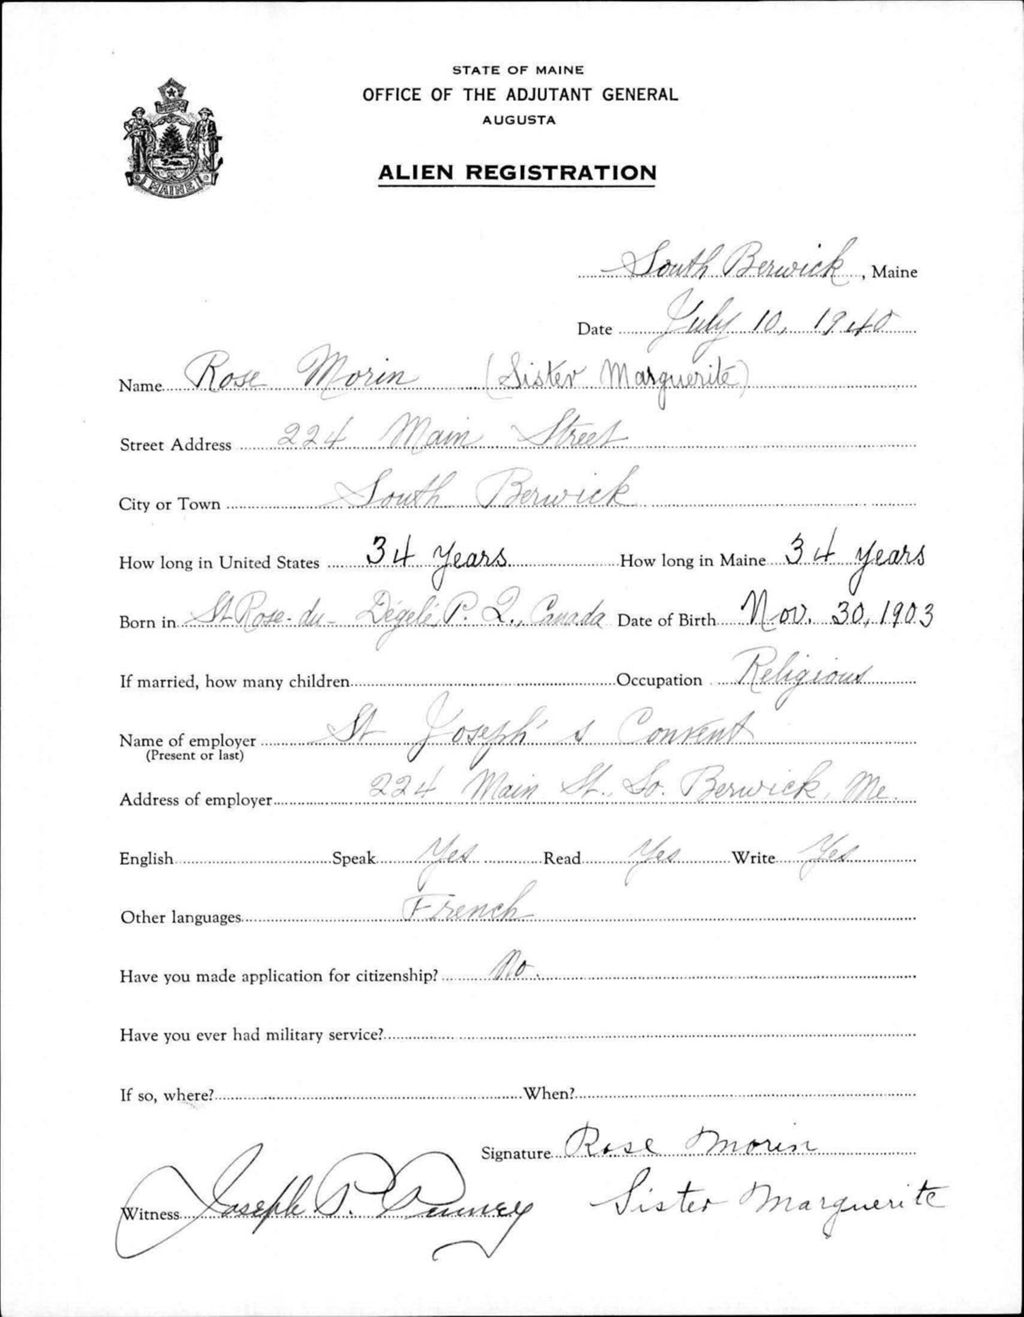 STATE OF MAINE
OFFICE OF THE ADJUTANT GENERAL
AUGUSTA
ALIEN REGISTRATION
MAINE
South Berwick, Maine
Date July 10, 1940
Name Rose Morin (Sister Marguerite)
Street Address 224 Main Street
City or Town South Berwick
How long in United States 34 years How long in Maine 34 years
Born in St Rose-du-Dégelé, P. Q., Canada Date of Birth Nov. 30, 1903
If married, how many children Occupation Religious
Name of employer St Joseph's Convent
(Present or last)
Address of employer 224 Main St. So. Berwick, Me.
English Speak Yes Read Yes Write Yes
Other languages French
Have you made application for citizenship? No.
Have you ever had military service?
If so, where? When?
Signature Rose Morin
Witness Joseph P. Sister Marguerite